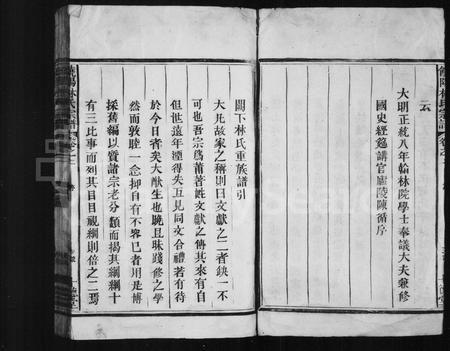 云
大明正統八年翰林院學士奉議大夫兼修
國史經筵講官廬陵陳循序
闕下林氏重族譜引
大凡故家之稱則曰文獻之二者缺一不
可也吾宗爲莆著姓文獻之傳其來有自
但世遠年湮得失互見同文合禮若有待
於今日者矣大猷生也晚且昧踐修之學
然而敦睦一念抑自有不容已者用是博
採舊編以質諸宗老分類而揭其綱綱十
有三比事而列其目目視綱則倍之二焉
林氏宗譜